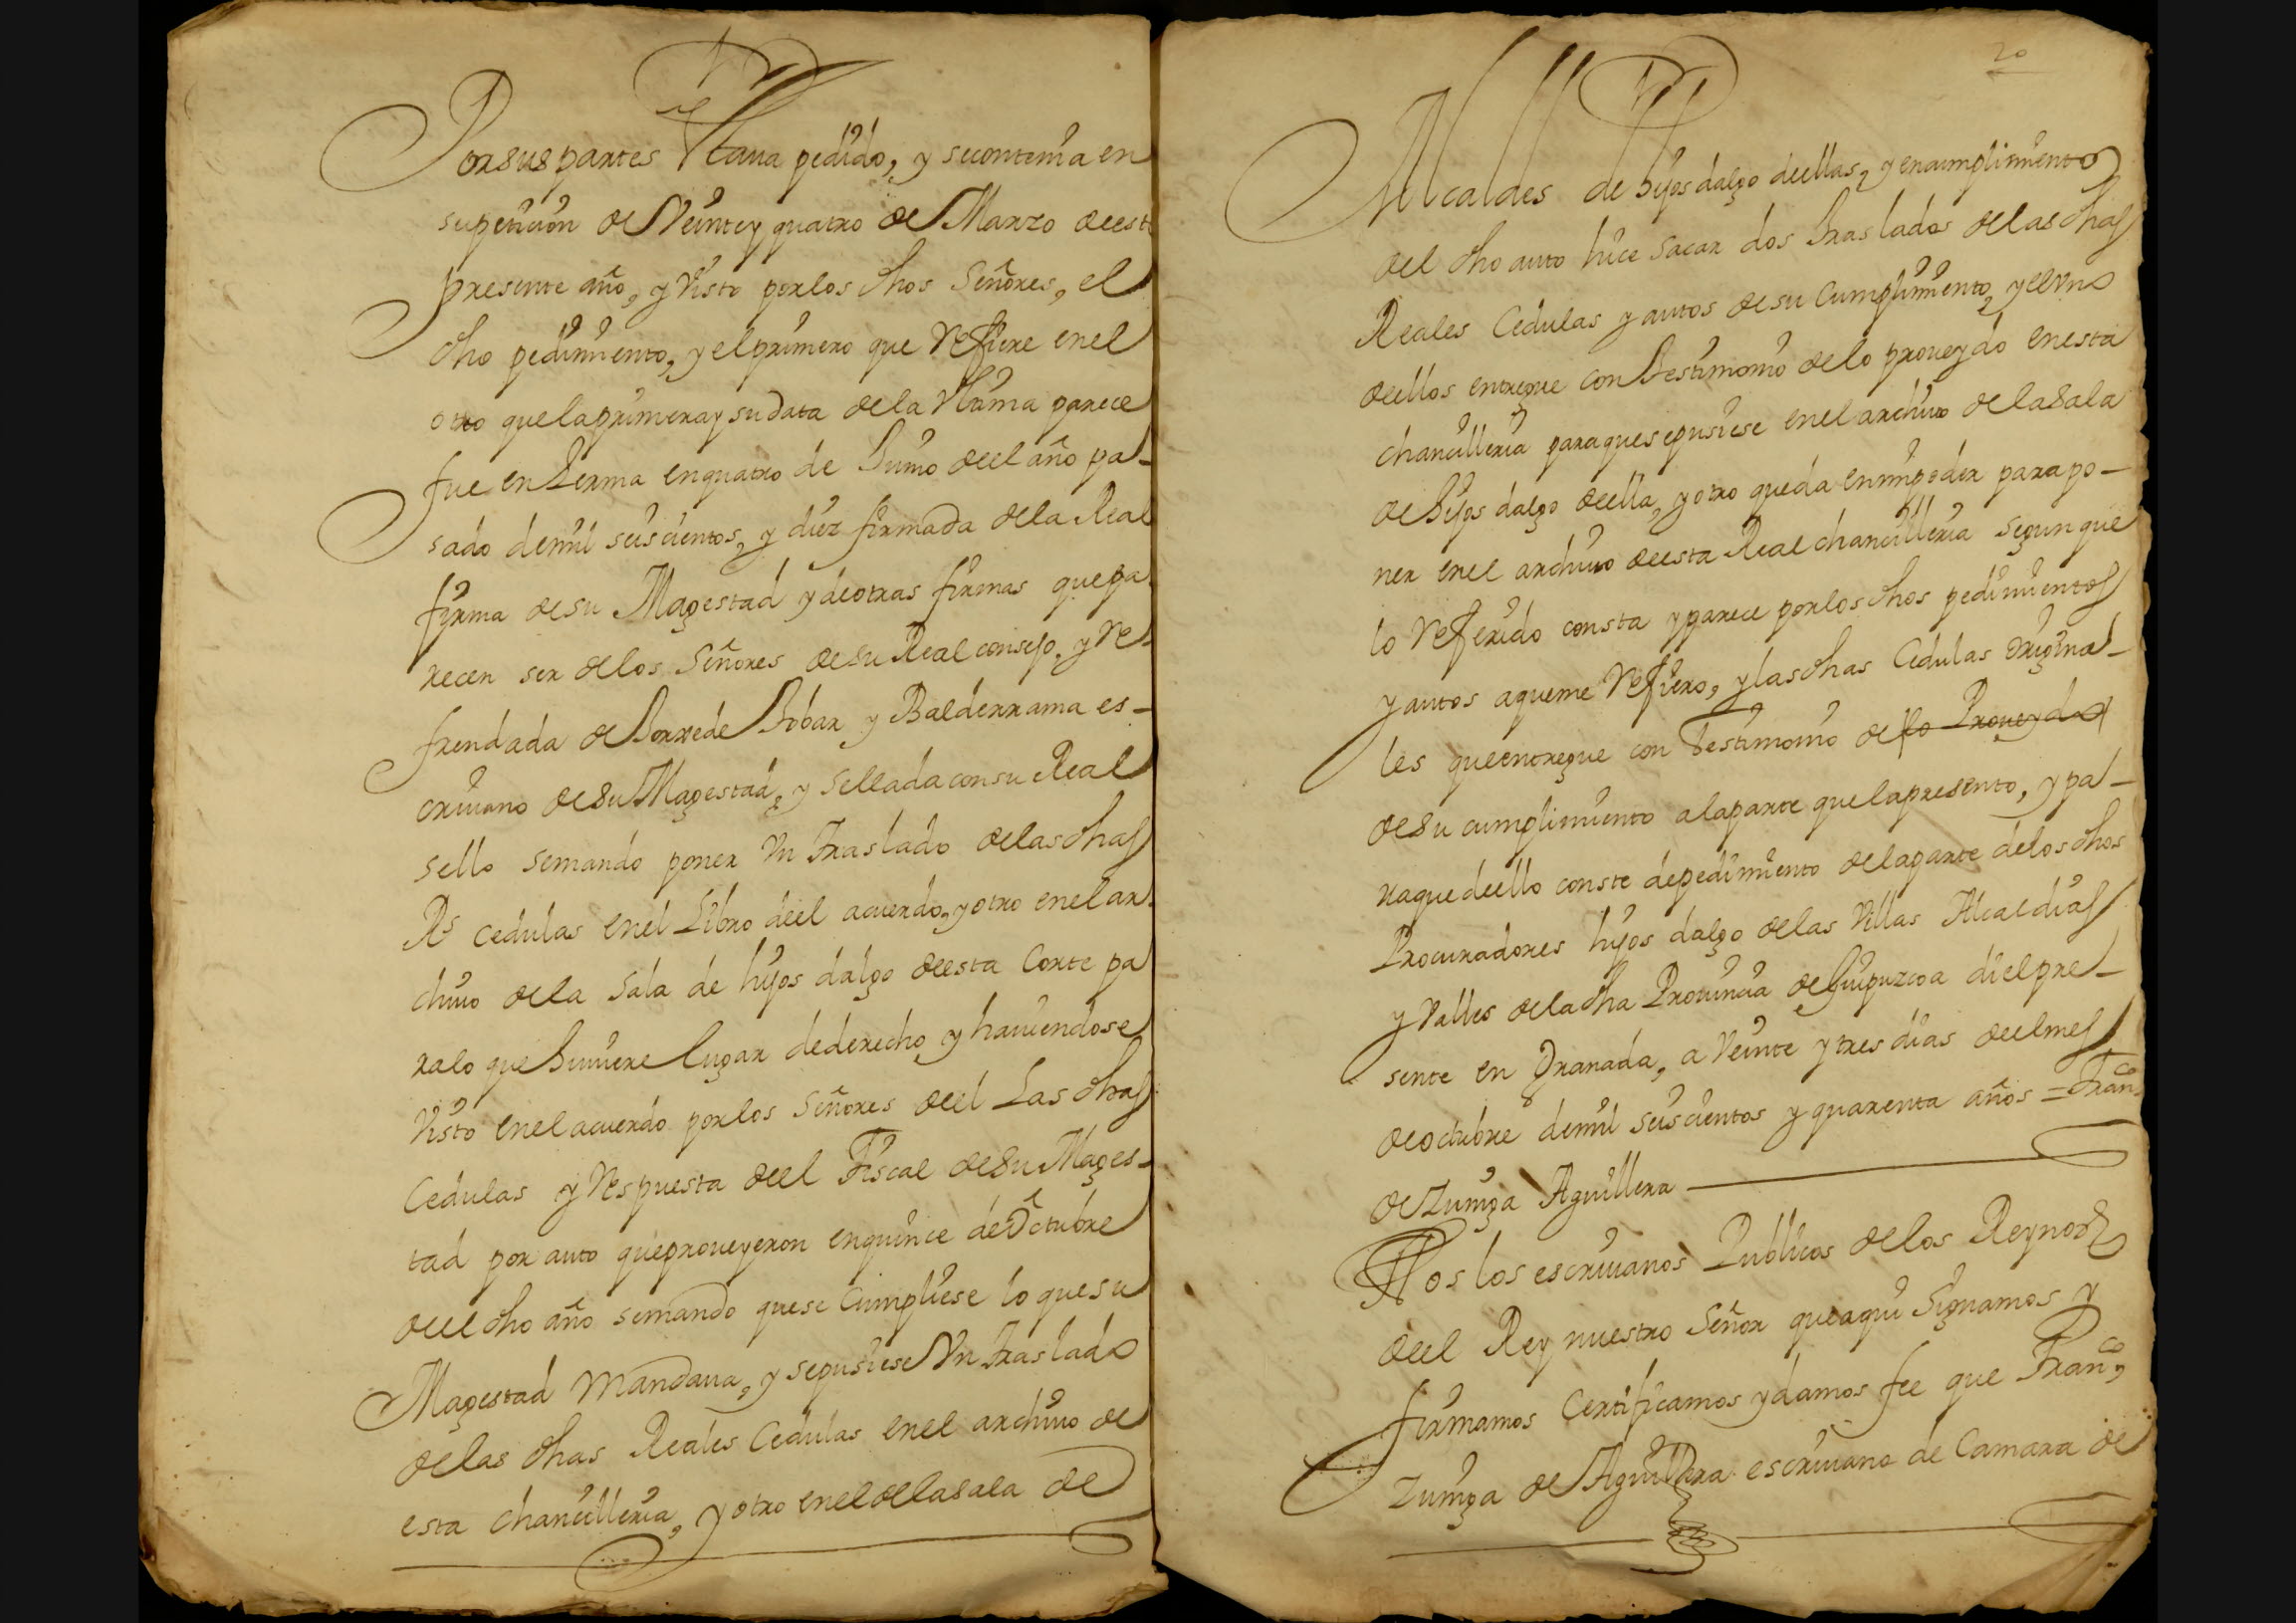 Por sus partes estaua pedido, y se contenia en
su peticion de Veinte y quatro de Marzo deeste
presente año, y visto por los dhos Señores, el
dho pedimiento, y el primero que Refiere en el
otro que la primera y su data de la Vltima parece
fue en Lerma en quatro de Junio deel año pa-
sado de mil seiscientos, y diez firmada de la Real
firma de su Magestad y de otras firmas que pa-
recen ser de los Señores de su Real consejo, y Re-
frendada de Jorxede Tobar y Balderrama es-
criuano de su Magestad, y sellada con su Real
sello se mando poner Vn Traslado de las dhas
Rs cedulas en el Libro deel acuerdo, y otro en el ar-
chiuo de la Sala de hijos dalgo deesta Corte pa
ra lo que huuiere lugar de derecho, y hauiendose
Visto en el acuerdo por los Señores deel Las dhas
Cedulas y Respuesta deel Fiscal de su Mages-
tad por auto que proueyeron en quince de Octubre
deel dho año se mando que se Cumpliese lo que su
Magestad Mandaua, y se pusiese Vn Traslado
de las dhas Reales Cedulas en el archiuo de
esta chancilleria, y otro en el de la sala de
20
Alcaldes de hijos dalgo deellas, y en cumplimiento
del dho auto hice sacar dos Traslados de las dhas
Reales Cedulas y autos de su Cumplimiento, y el vno
deellos entregue con Testimonio de lo proueydo en esta
chancilleria para que se pusiese en el archiuo de la Sala
de hijos dalgo deella, y otro queda en mi poder para po-
ner en el archiuo deesta Real chancilleria segun que
lo Referido consta y parece por los dhos pedimientos
y autos a que me Refiero, y las dhas Cedulas Origina-
les que entregue con Testimonio de lo Proueydo
de su cumplimiento a la parte que la presento, y pa-
ra que deello conste de pedimiento de la parte de los dhos
Procuradores hijos dalgo de las Villas Alcaldias
y Valles de la dha Prouincia de Guipuzcoa di el pre-
sente en Granada, a Veinte y tres dias deel mes
de octubre de mil seiscientos y quarenta años = Franco
de Zuñiga Aguillera
Nos los escriuanos Publicos de los Reynos
deel Rey nuestro Señor que aqui Signamos y
firmamos Certificamos y damos fee que Franco,
Zuñiga de Aguillera escriuano de Camara de